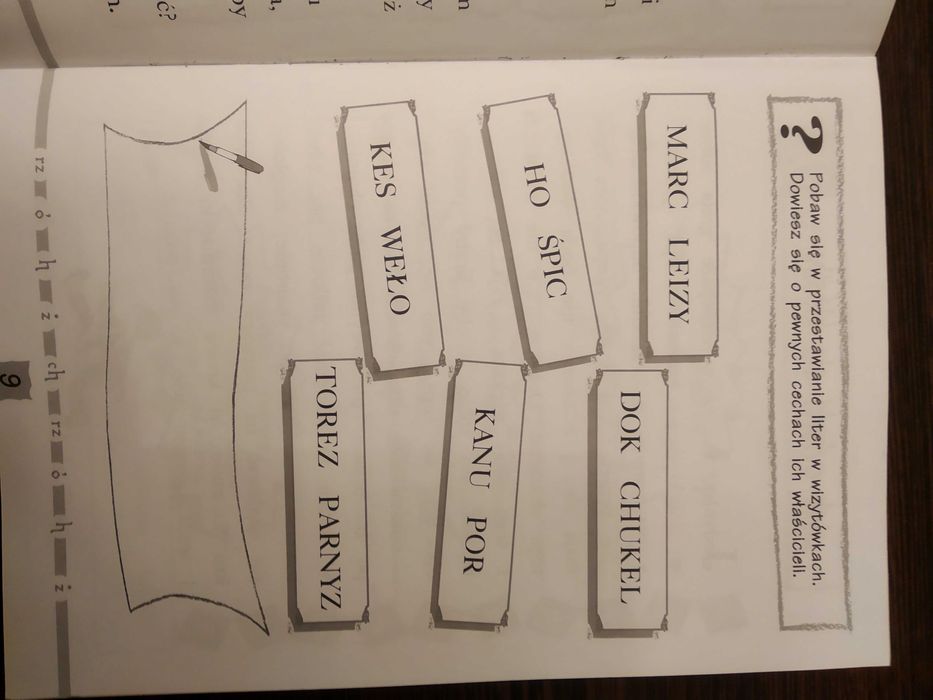 ?
Pobaw się w przestawianie liter w wizytówkach.
Dowiesz się o pewnych cechach ich właścicieli.
MARC LEIZY
DOK CHUKEL
HO ŚPIC
KANU POR
KES WEŁO
TOREZ PARNYZ
rz ó h ż ch rz ó h ż
9